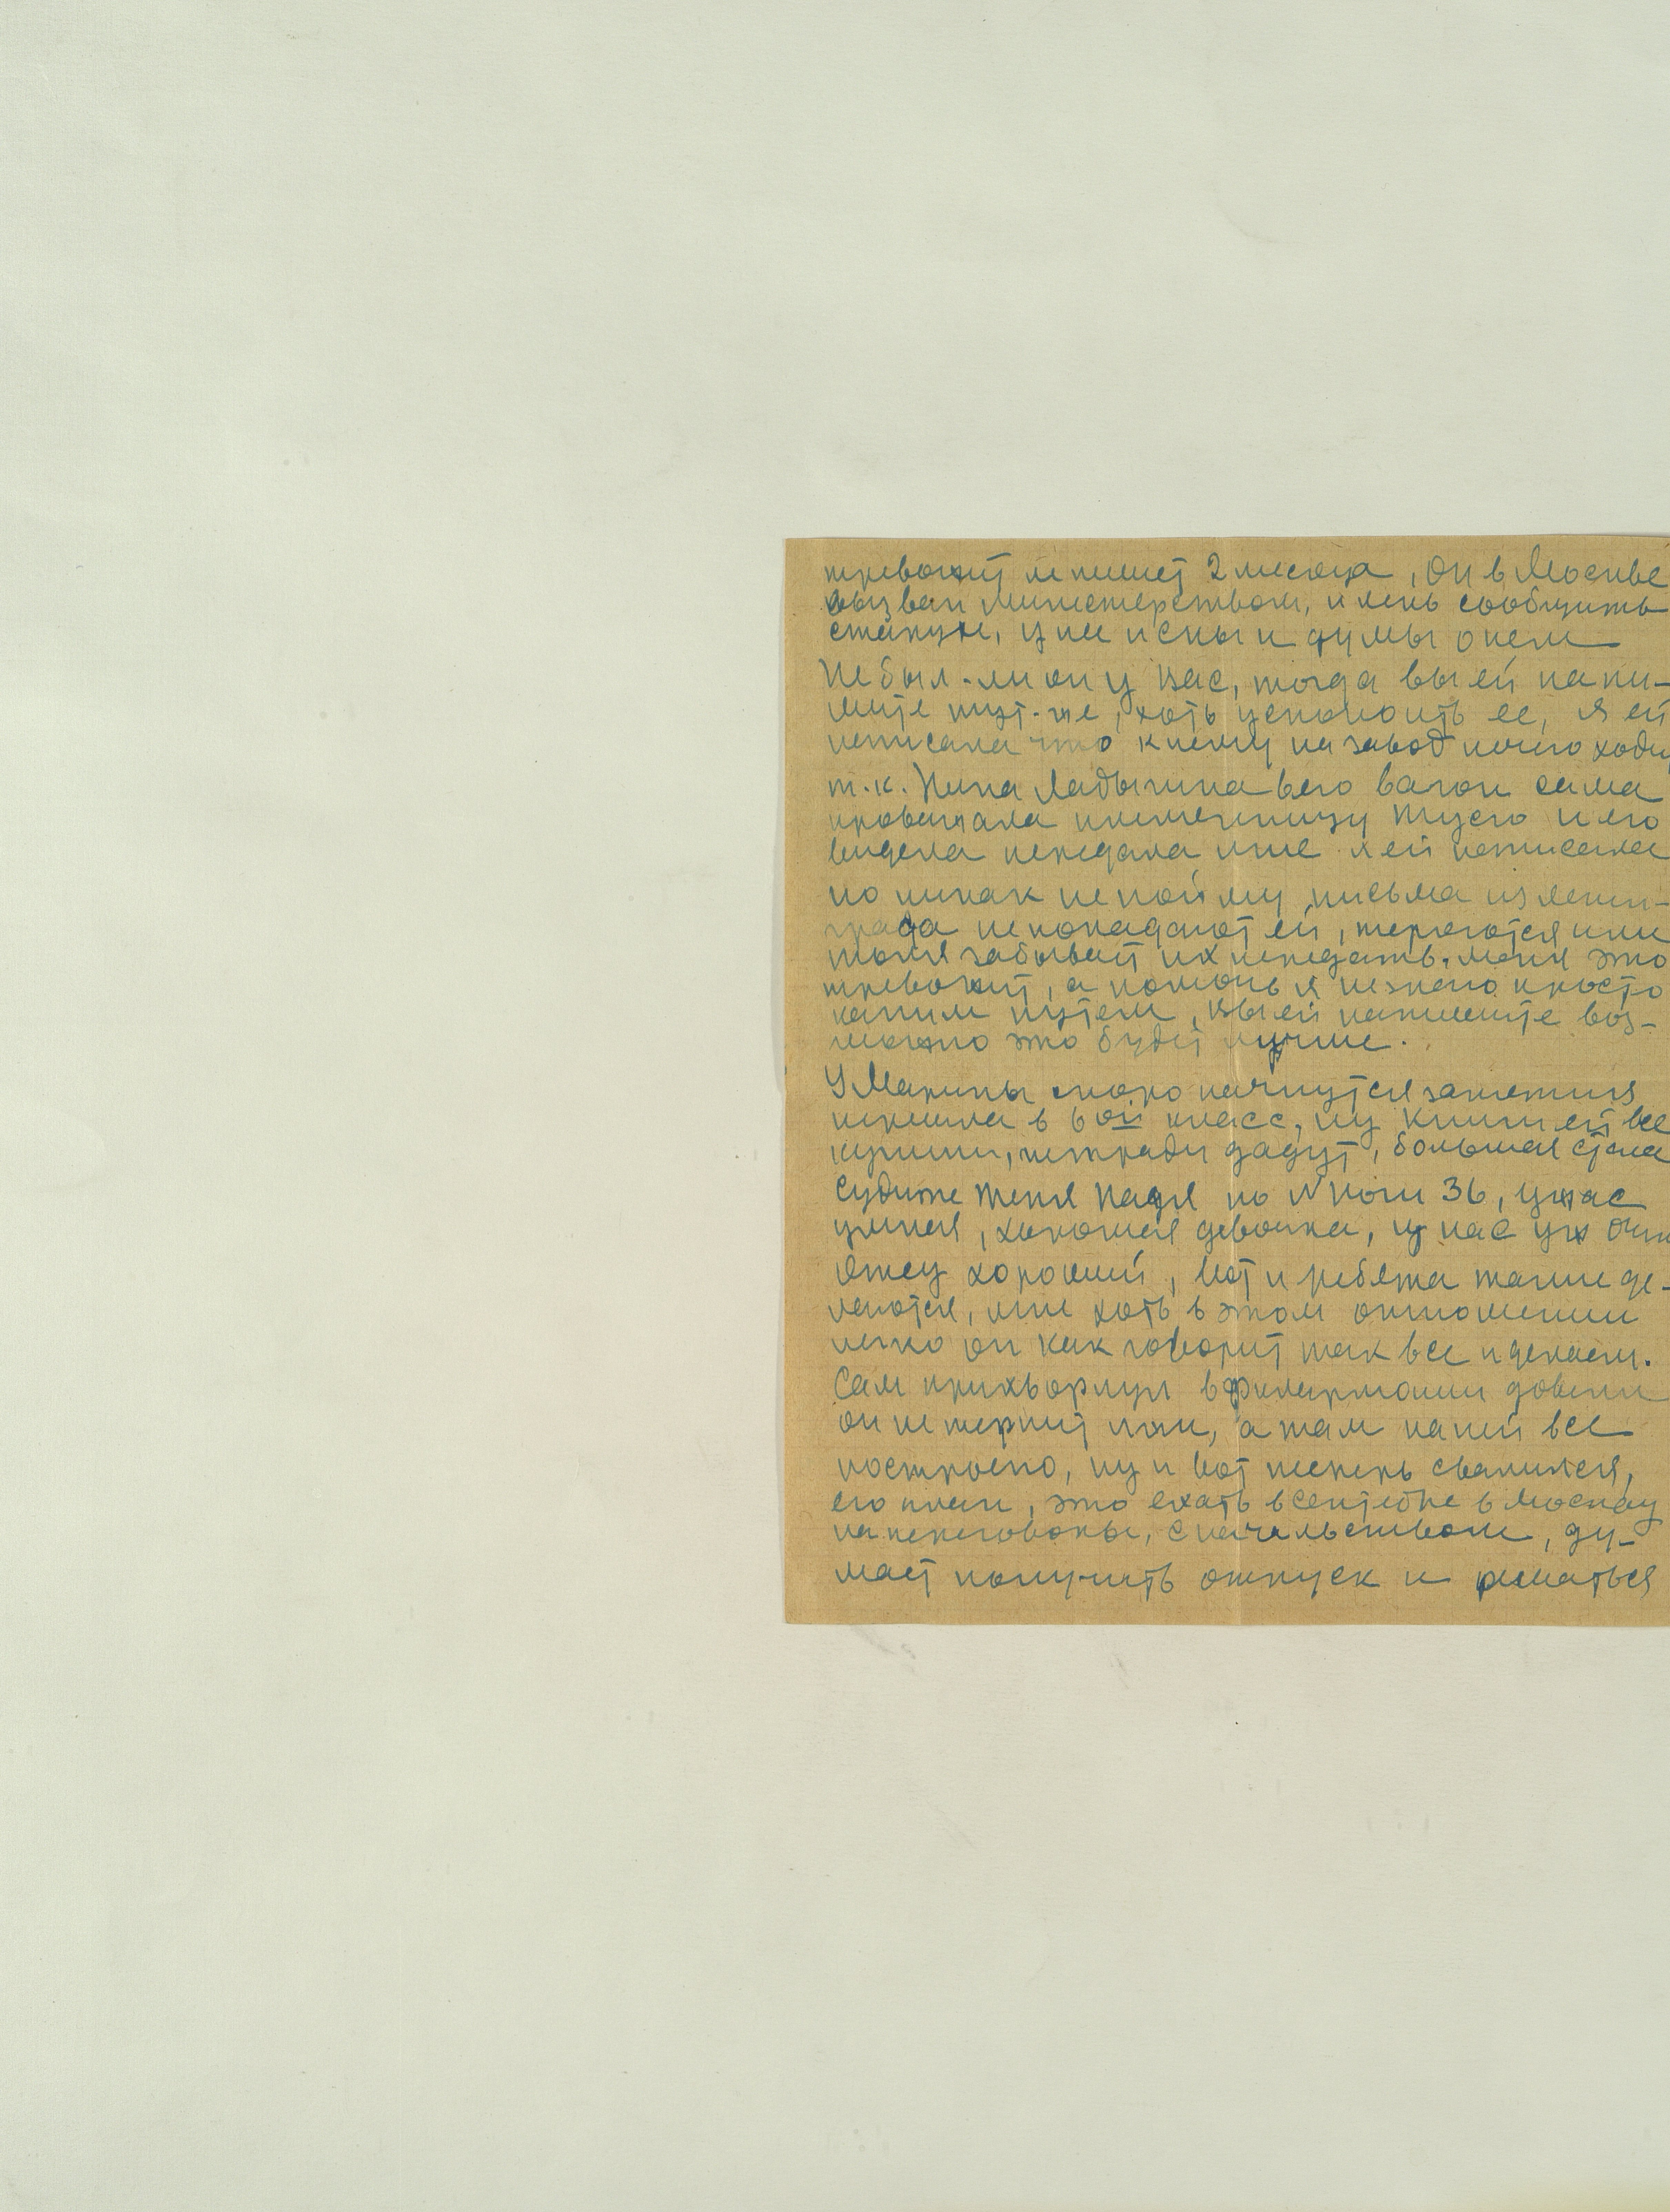 тревожит не пишет 2 месяца, Он в Москве
вызван министерством, и лень сообщить
у нее и сны и думы о нем
Не был-ли он у Вас, тогда вы ей напи-
шите тут-же, хоть успокоить ее, я ей
написала что к нему на завод ходи
т.к. Нина Ладыгина в его вагон сама
провожала племянницу Тусю и его
видела передала мне я ей написала
но никак не пойму письма из Ленин-
града не попадают ей, теряются или
забывает их передать. меня это
тревожит, а помочь я не знаю просто
каким путем, Вы ей напишите воз-
можно это будет лучше.
У Марины скоро начнутся занятия
перешла в 6ой класс, ну книги ей все
купили, тетради дадут, большая стала
судите тетя Надя по № ноги 36, ужас
умная, хорошая девочка, у нас уж
отец хороший, вот и ребята такие де-
лаются, мне хоть в этом отношении
легко он как говорит так все и делаем.
Сам прихворнул в филармонии довели
он не терпит лжи, а там на ней все
построено, ну и вот теперь свалился,
его план, это ехать в сентябре в Москву
на переговоры, с начальством, ду-
мает получить отпуск и